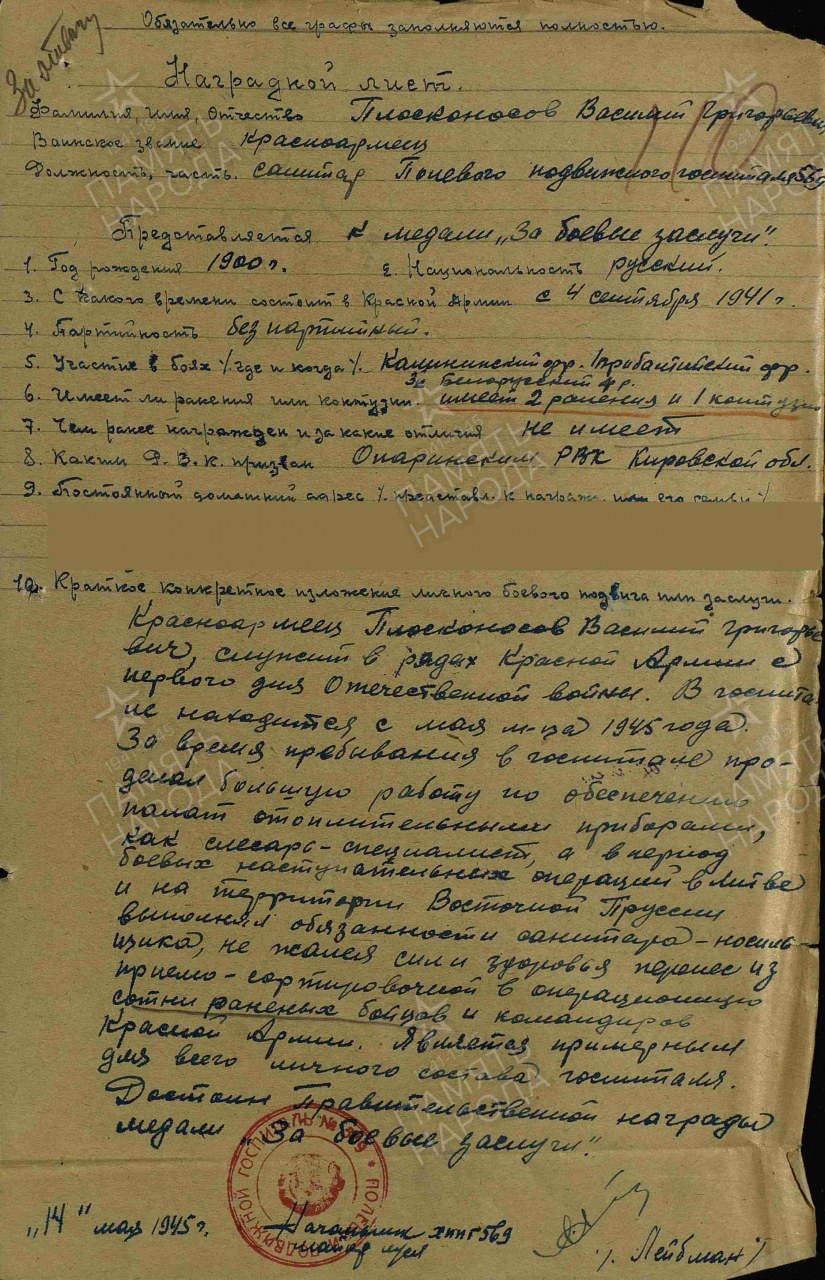 Обязательно все графы заполняются полностью.
За отвагу
Наградной лист.
Фамилия, имя, отчество Плосконосов Василий Григорьевич
Воинское звание Красноармеец
Должность, часть. санитар Полевого подвижного госпиталя 569
Представляется к медали „За боевые заслуги".
1. Год рождения 1900 г. 2. Национальность русский.
3. С какого времени состоит в Красной Армии с 4 сентября 1941 г.
4. Партийность безпартийный.
5. Участие в боях % где и когда %. Калининский фр. 1 прибалтийский фр.
3й Белорусский фр.
6. Имеет ли ранения или контузии. имеет 2 ранения и 1 контузию
7. Чем ранее награжден и за какие отличия не имеет
8. Каким Р.В.К. призван Опаринским РВК Кировской обл.
9. Постоянный домашний адрес % представл. к награжд. или его семьи %
10. Краткое конкретное изложение личного боевого подвига или заслуги.
Красноармеец Плосконосов Василий Григорье
вич, служит в рядах Красной Армии с
первого дня Отечественной войны. В госпита-
ле находится с мая м-ца 1945 года.
За время пребывания в госпитале про-
делал большую работу по обеспечению
палат отопительными приборами,
как слесарь-специалист, а в период
боевых наступательных операций в Литве
и на территории Восточной Пруссии
выполнял обязанности санитара-носиль-
щика, не жалея сил и здоровья перенес из
приемо-сортировочной в операционную
сотни раненых бойцов и командиров
Красной Армии. Является примерным
для всего личного состава госпиталя.
Достоин Правительственной награды
медали „За боевые заслуги".
ПОЛЕВОЙ ПОДВИЖНОЙ ГОСПИТАЛЬ № 569
„14" мая 1945 г. Начальник хппг 569
майор м/с
/. Лейбман /
ПАМЯТЬ НАРОДА